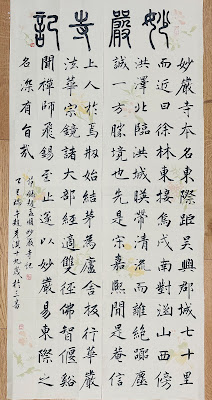 妙嚴寺記
妙嚴寺本名東際距吳興郡城七十里
而近曰徐林東接烏戍南對涵山西傍
洪澤北臨洪城暎帶清流而離絕囂塵
誠一方勝境也先是宋嘉熙間是菴信
上人於焉剏始結茅為廬舍板行華嚴
法華宗鏡諸大部經適雙徑佛智偃谿
聞禪師飛錫至止遂以妙嚴易東際之
名深有旨哉
節臨趙孟頫妙嚴寺記